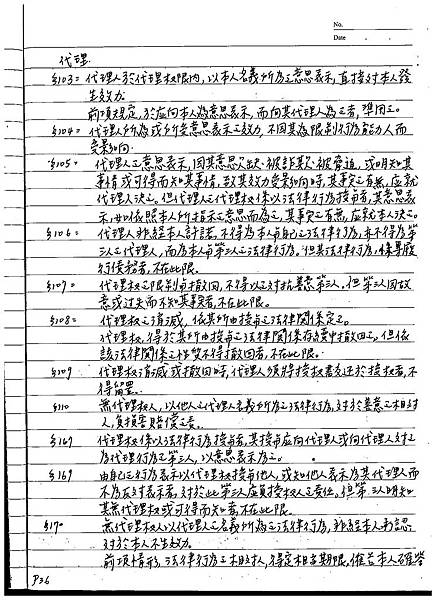 No.
Date
代理.
§103= 代理人於代理權限內,以本人名義所為之意思表示,直接對本人發
生效力.
前項規定,於应向本人為意思表示,而向其代理人為之者,準用之。
§104= 代理人所為或所受意思表示之效力,不因其為限制行為能力人而
受影响.
§105= 代理人之意思表示,因其意思欠缺.被詐欺.被脅迫,或明知其
事情或可得而知其事情,致其效力受影响時,其事實之有無,应就
代理人決之。但代理人之代理权係以法律行為授与者,其意思表
示,如依照本人所指示之意思而為之,其事實之有無,应就本人決之。
§106= 代理人非經本人許諾,不得為本人与自己之法律行為,亦不得為第
三人之代理人,而為本人与第三人之法律行為。但其法律行為,係專履
行債務者,不在此限。
§107= 代理权之限制与撤回,不得以之対抗善意第三人,但第三人因故
意或过失而不知其事實者,不在此限。
§108= 代理权之消滅,依其所由授与之法律関係定之。
代理权,得於其所由授与之法律関係存續中撤回之,但依
該法律関係之性質不得撤回者,不在此限。
§109 代理权消滅或撤回時,代理人須將授权書交还於授权者,不
得留置.
§110 無代理权人,以他人之代理人名義所為之法律行為,対於善意之相対
人,負損害賠償之責.
§167 代理权係以法律行為授与者,其授与应向代理人或向代理人対之
為代理行為之第三人,以意思表示為之。
§169 由自己之行為表示以代理权授与他人,或知他人表示為其代理人而
不為反対表示者,対於此第三人应負授权人之責任,但第三人明知
其無代理权或可得而知者,不在此限。
§170 無代理权人以代理人之名義所為之法律行為,非經本人承認
対於本人不生效力。
前項情形,法律行為之相対人,得定相当期限,催告本人確答
P36